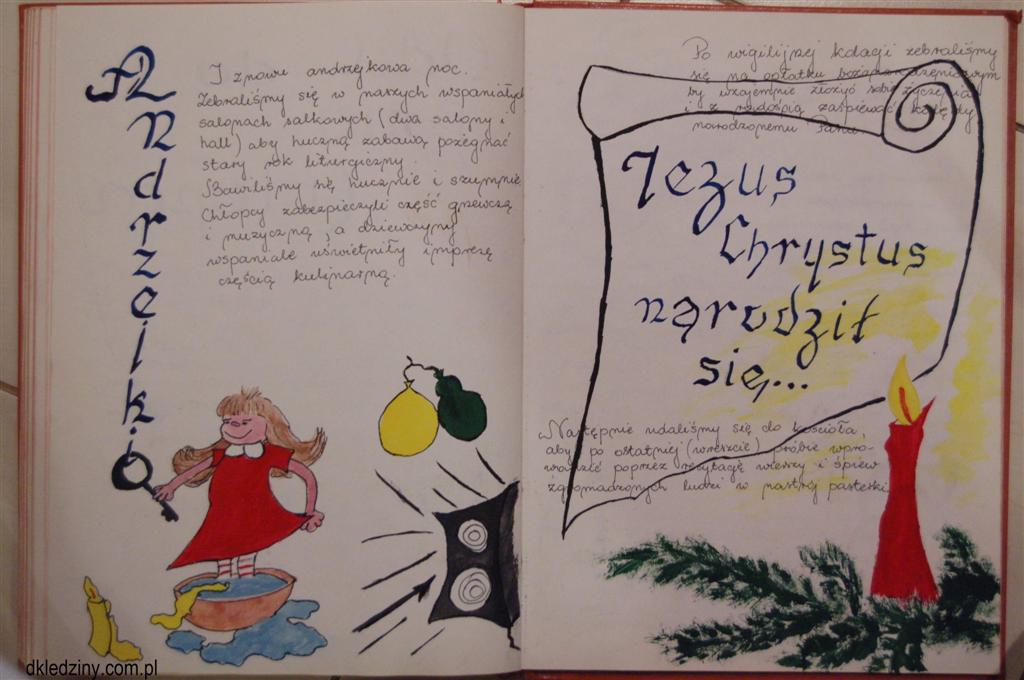 Andrzejki
I znowu andrzejkowa noc.
Zebraliśmy się w naszych wspaniałych
salonach salkowych (dwa salony i
hall) aby huczną zabawą pożegnać
stary rok liturgiczny.
Bawiliśmy się hucznie i szumnie
Chłopcy zabezpieczyli część grzewczą
i muzyczną, a dziewczyny
wspaniale uświetniły imprezę
częścią kulinarną.
Po wigilijnej kolacji zebraliśmy
się na opłatku bożonarodzeniowym
by wzajemnie złożyć sobie życzenia
i z radością zaśpiewać kolędy
narodzonemu Panu.
Jezus
Chrystus
narodził
się...
Następnie udaliśmy się do kościoła,
aby po ostatniej (wreszcie) próbie wpro-
wadzić poprzez recytację wierszy i śpiew
zgromadzonych ludzi w nastrój pasterki
dkledziny.com.pl